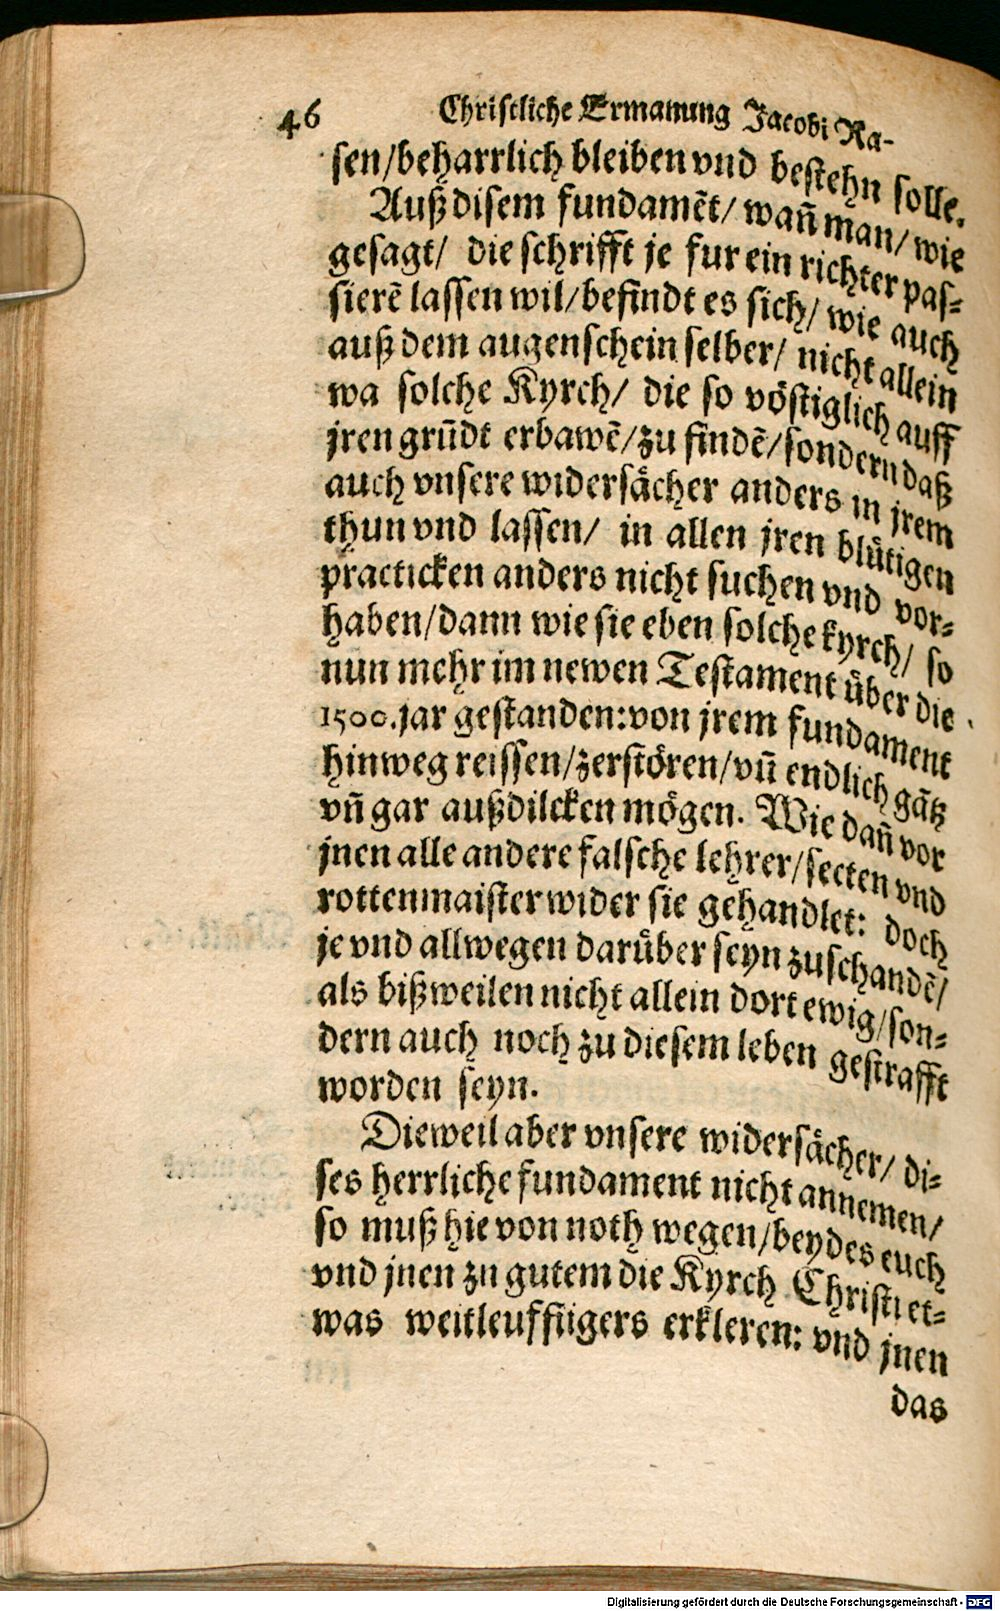 46 Christliche Ermanung Jacobi Ra-
sen/beharrlich bleiben vnd bestehn solle.
Auß disem fundamēt/ wañ man/ wie
gesagt/ die schrifft je fur ein richter pas-
sierē lassen wil/befindt es sich/ wie auch
auß dem augenschein selber/ nicht allein
wa solche Kyrch/ die so vöstiglich auff
jren grūdt erbawē/zu findē/sondern daß
auch vnsere widersächer anders in jrem
thun vnd lassen/ in allen jren blütigen
practicken anders nicht suchen vnd vor-
haben/dann wie sie eben solche kyrch/ so
nun mehr im newen Testament über die
1500.jar gestanden:von jrem fundament
hinweg reissen/zerstören/vñ endlich gātz
vñ gar außdilcken mögen. Wie dañ vor
jnen alle andere falsche lehrer/secten vnd
rottenmaister wider sie gehandlet: doch
je vnd allwegen darüber seyn zuschandē/
als bißweilen nicht allein dort ewig/son-
dern auch noch zu diesem leben gestrafft
worden seyn.
Dieweil aber vnsere widersächer/ di-
ses herrliche fundament nicht annemen/
so muß hie von noth wegen/beydes euch
vnd jnen zu gutem die Kyrch Christi et-
was weitleuffiigers erkleren: vnd jnen
das
Digitalisierung gefördert durch die Deutsche Forschungsgemeinschaft - DFG